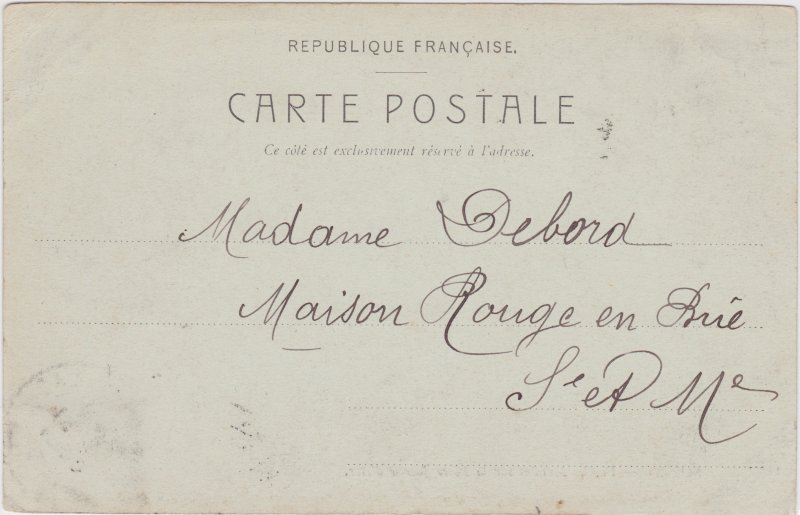 REPUBLIQUE FRANÇAISE.
CARTE POSTALE
Ce côté est exclusivement réservé à l'adresse.
Madame Debord
Maison Rouge en Brie
Se et Me